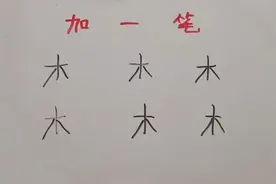 加一笔
木 木 木
木 木 木